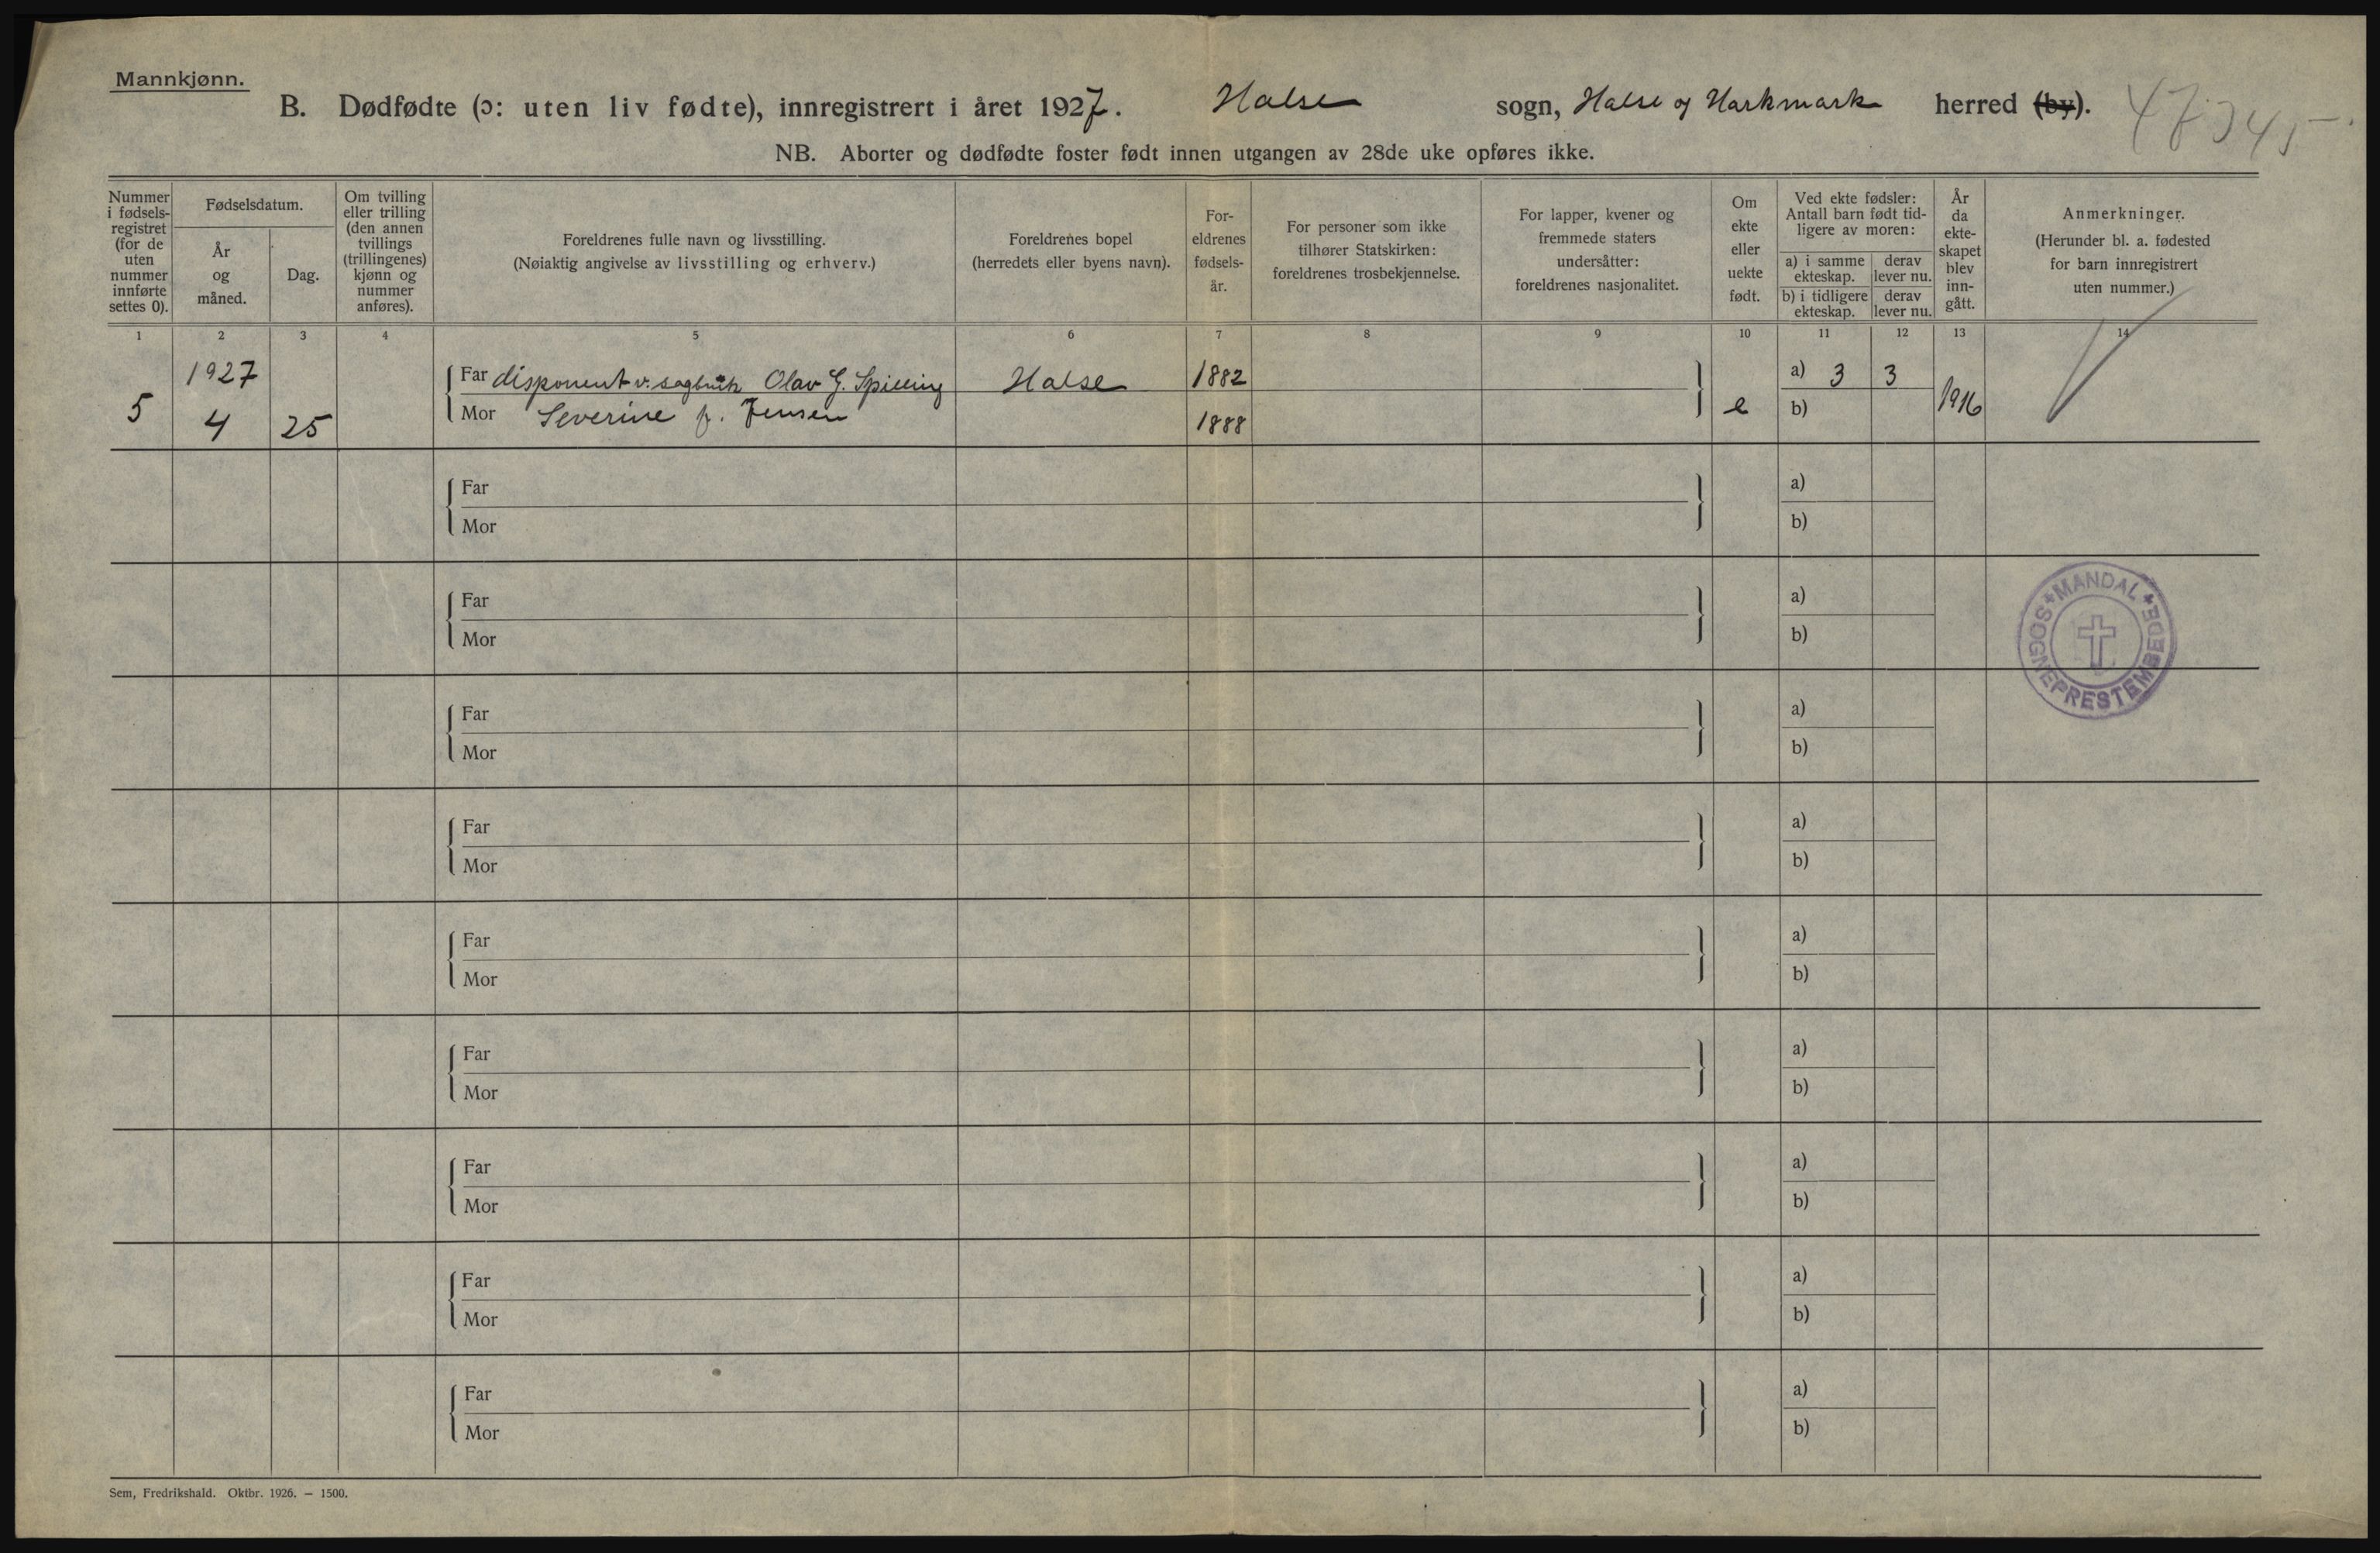 Mannkjønn.
B. Dødfødte (ɔ: uten liv fødte), innregistrert i året 1927. Halse sogn, Halse og Harkmark herred (by).
NB. Aborter og dødfødte foster født innen utgangen av 28de uke opføres ikke.
Nummer i fødsels-registret (for de uten nummer innførte settes 0).
Fødselsdatum.
År og måned.
Dag.
Om tvilling eller trilling (den annen tvillings (trillingenes) kjønn og nummer anføres).
Foreldrenes fulle navn og livsstilling.
(Nøiaktig angivelse av livsstilling og erhverv.)
Foreldrenes bopel
(herredets eller byens navn).
For-eldrenes fødsels-år.
For personer som ikke tilhører Statskirken: foreldrenes trosbekjennelse.
For lapper, kvener og fremmede staters undersåtter: foreldrenes nasjonalitet.
Om ekte eller uekte født.
Ved ekte fødsler: Antall barn født tid-ligere av moren:
a) i samme ekteskap.
derav lever nu.
b) i tidligere ekteskap.
derav lever nu.
År da ekte-skapet blev inn-gått.
Anmerkninger.
(Herunder bl. a. fødested for barn innregistrert uten nummer.)
1 2 3 4 5 6 7 8 9 10 11 12 13 14
1927 Far disponent v. sagbruk Olav G. Spilling Halse 1882 a) 3 3
5 4 25 Mor Severine f. Jensen 1888 e b) 1916
Far a)
Mor b)
Far a)
Mor b)
MANDAL SOGNEPRESTEMBEDE
Far a)
Mor b)
Far a)
Mor b)
Far a)
Mor b)
Far a)
Mor b)
Far a)
Mor b)
Far a)
Mor b)
Far a)
Mor b)
Sem, Fredrikshald. Oktbr. 1926. — 1500.